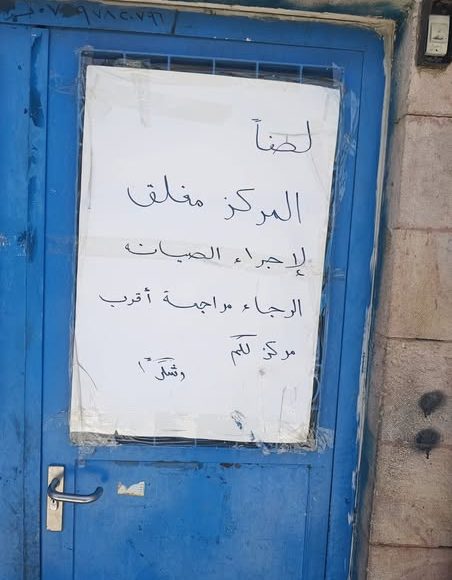 لطفاً
المركز مغلق
لإجراء الصيانه
الرجاء مراجعة أقرب
مركز لكم
وشكرًا